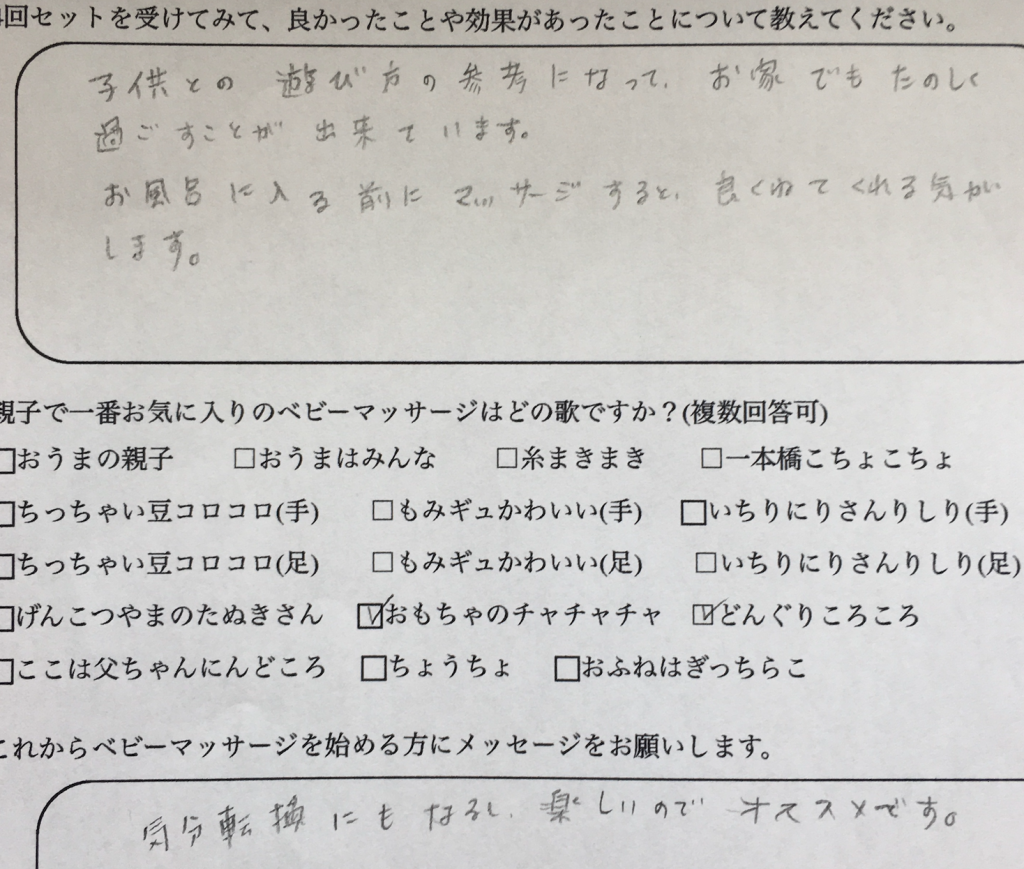 4回セットを受けてみて、良かったことや効果があったことについて教えてください。
子供との遊び方の参考になって、お家でもたのしく
過ごすことが出来ています。
お風呂に入る前にマッサージすると、良くねてくれる気が
します。
親子で一番お気に入りのベビーマッサージはどの歌ですか？(複数回答可)
□おうまの親子 □おうまはみんな □糸まきまき □一本橋こちょこちょ
□ちっちゃい豆コロコロ(手) □もみギュかわいい(手) □いちりにりさんりしり(手)
□ちっちゃい豆コロコロ(足) □もみギュかわいい(足) □いちりにりさんりしり(足)
□げんこつやまのたぬきさん ☑おもちゃのチャチャチャ ☑どんぐりころころ
□ここは父ちゃんにんどころ □ちょうちょ □おふねはぎっちらこ
これからベビーマッサージを始める方にメッセージをお願いします。
気分転換にもなるし、楽しいのでオススメです。